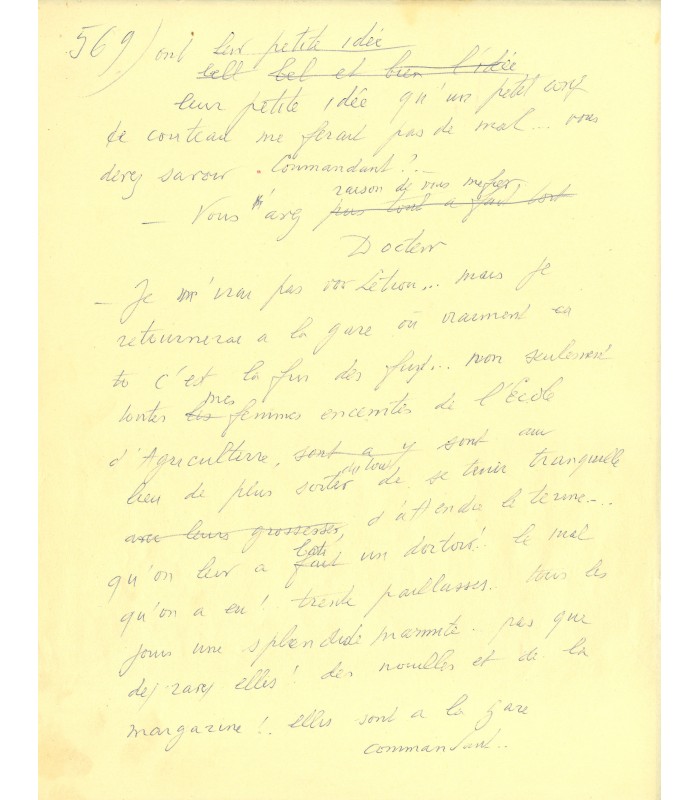 569) ont leur petite idée
bell bel et bien l'idée
leur petite idée qu'un petit coup
de couteau me ferait pas de mal... vous
devez savoir Commandant?
raison de vous méfier,
- Vous avez pas tout a fait tort
Docteur
- Je m' pas voir ... mais je
retournerai a la gare où vraiment
c'est la fin des fins... non seulement
mes
toutes les femmes enceintes de l'Ecole
d'Agriculture, sont a y sont au
du tout
lieu de plus sortir de se tenir tranquille
avec leurs grossesses, d'attendre le terme...
bati
qu'on leur a fait un dortoir! le mal
qu'on a eu! trente paillasses. tous les
jours une splendide marmite. pas que
des raves elles! des nouilles et de la
margarine!. elles sont a la gare
commandant..